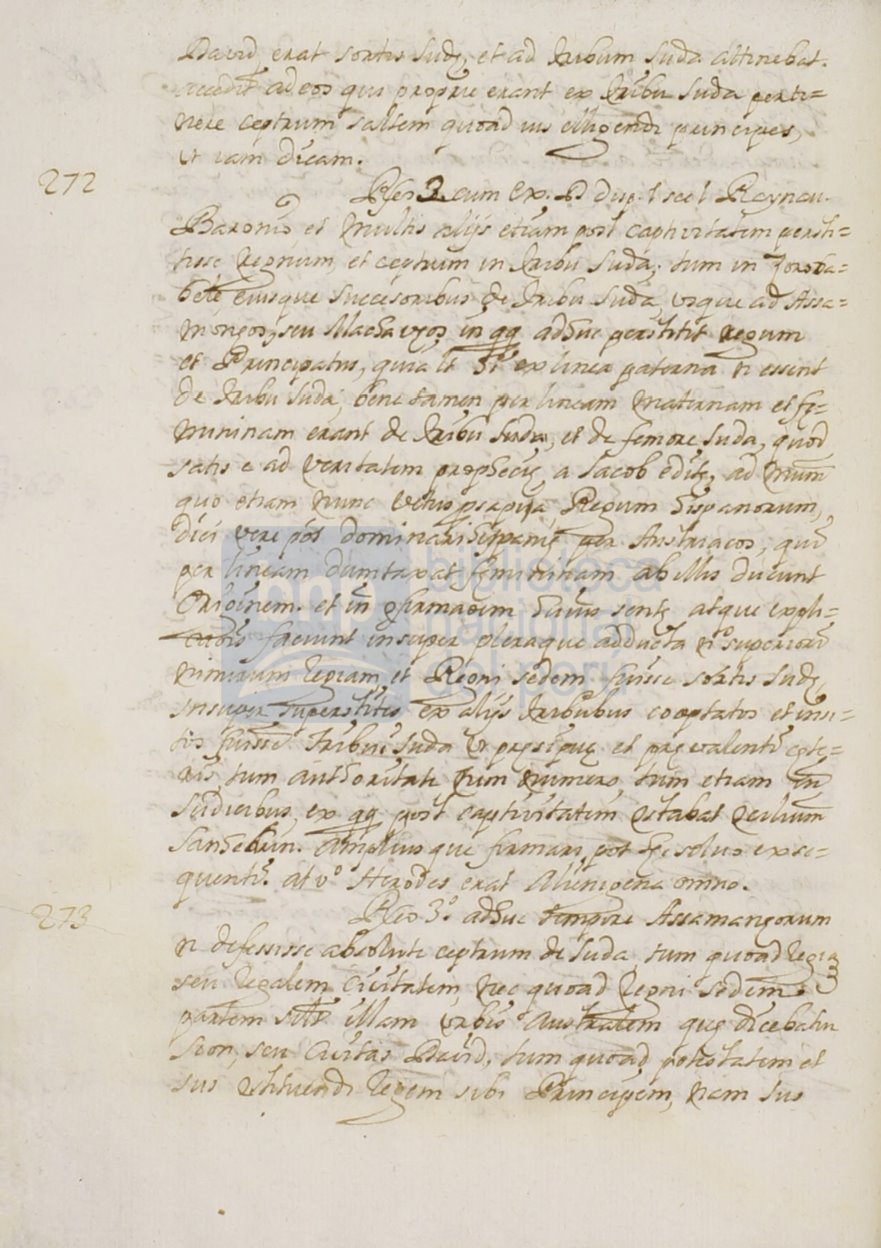 David, erat sortis Judę, et ad tribum Juda attinebat.
accedit ad eos qui proprie erant ex tribu Juda perti=
nere ceptrum saltem quoad ius eligendi principes,
ut iam dicam.
272
3. cum Ex. P. Raynau.
Baronio et multis alijs etiam post captivitatem persti=
tisse regnum, et ceptrum in tribu Juda; tum in Zoroba=
bele, eiusque succesoribus de tribu Juda usque ad Assa=
moneos, seu Machavęos in qq adhuc perstitit regum
et Principatus, quia licet ex linea paterna n essent
de tribu Juda, bene tamen per lineam maternam et fę=
mininam erant de tribu Juda, et de femore Juda, quod
satis e ad veritatem prophecię, a Jacob editę, ad mum
quo etiam nunc prosapia Regum Hispanorum,
dici vere pot dominari Hispanię per Austriacos, qui
per lineam dumtaxat fęmininam ab illis ducunt
Originem. et in huius sentę atque expli=
faciunt insuper pleraque adducta no superiori
nimirum regiam, et Regni sedem fuisse sortis Judę,
insuper superstites ex alijs tribubus cooptatos et insi=
tos fuisse tribui Juda ut pręcipuę et pręvalenti cęte=
ris, tum authoritate tum numero, tum etiam in
Judicibus, ex qq post captivitatem
Sanhedrin. Ampliusque firmari pot hęc soluo ex se=
quenti. at vo Herodes erat Alienigena omno.
273
3o adhuc tempore Assamangorum
n defessisse absolute ceptrum de Juda, tum quoad regia
seu regalem civitatem, nec quoad regni sedem
partem illam urbis Australem quę dicebatur
Sion, seu civitas David, tum quoad potestatem et
ius regem sibi Principem, nam ius
biblioteca
nacional
del perú